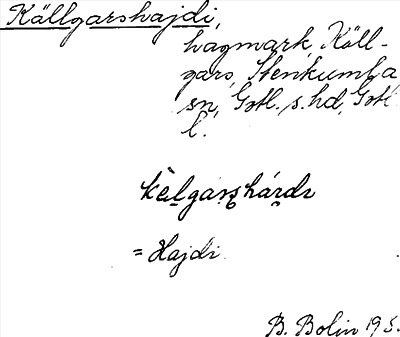 Källgarshajdi,
hagmark, Käll-
gars, Stenkumla
sn, Gotl. s. hd, Gotl.
l.
= Hajdi
B. Bolin 195.